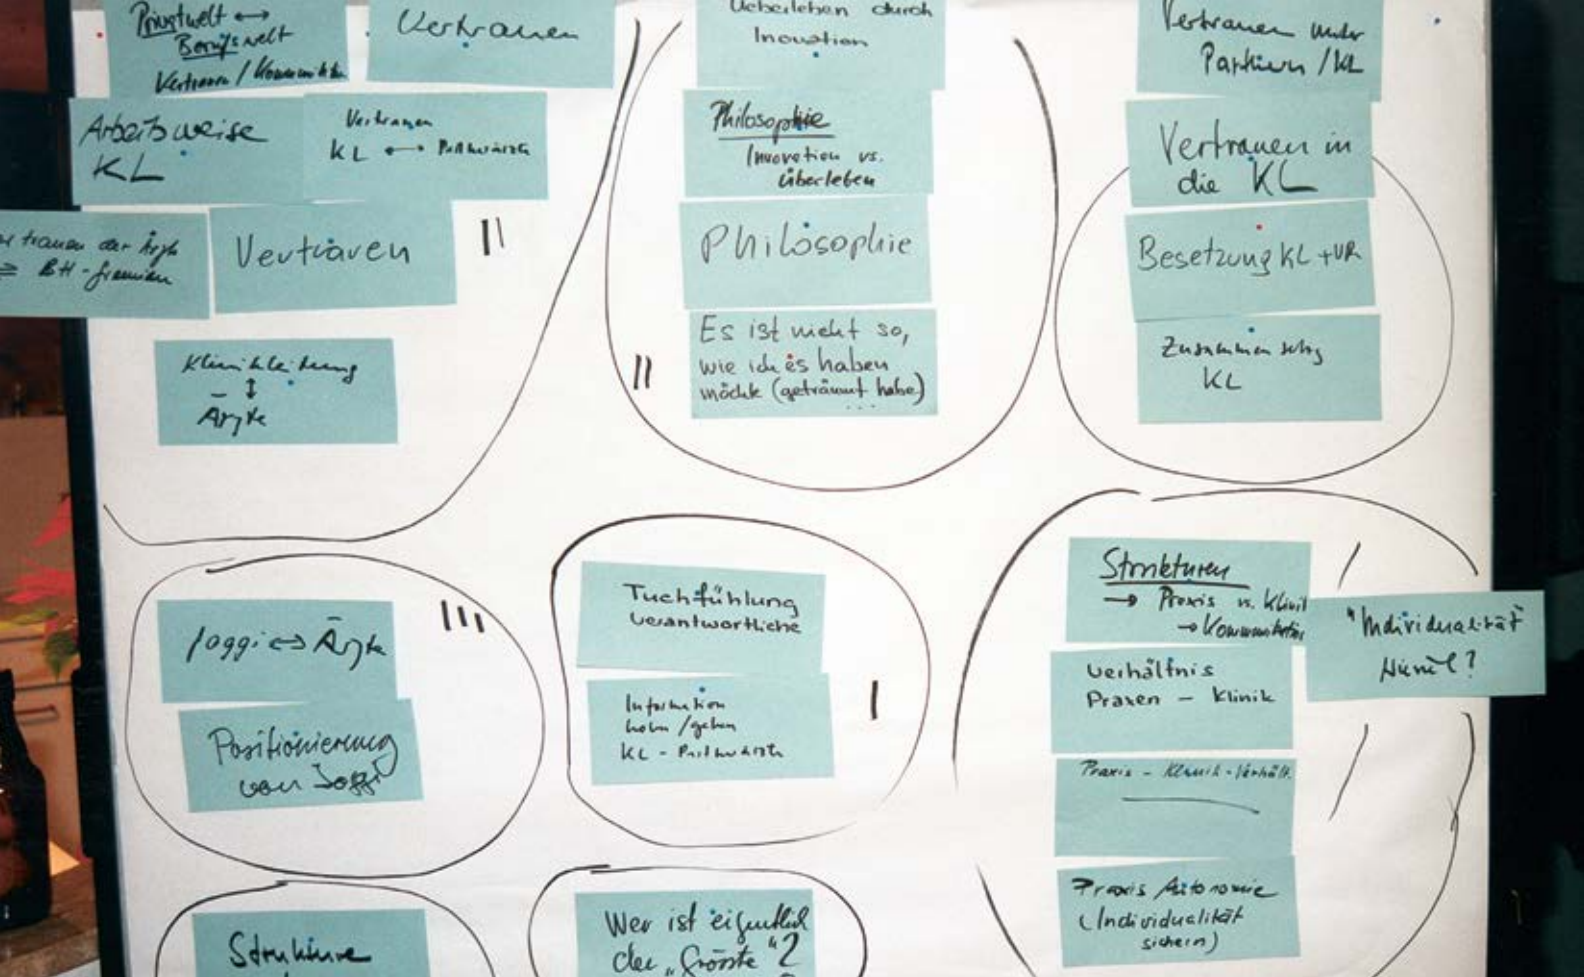 Privatwelt ↔
Berufswelt
Vertrauen / Kommunikation
Vertrauen
Arbeitsweise
KL
Vertrauen
KL ↔ Partnerärzte
trauen der Ärzte
Vertrauen
II
Klinikleitung
↕
Ärzte
Ueberleben durch
Inovation
Philosophie
Innovation vs.
überleben
Philosophie
Es ist nicht so,
wie ich es haben
möchte (geträumt habe)
...
II
Vertrauen unter
Partnern / KL
Vertrauen in
die KL
Besetzung KL + VR
Zusammensetzg
KL
Joggi ↔ Ärzte
III
Positionierung
von Joggi
Tuchfühlung
verantwortliche
Information
holen / geben
KL - Partnerärzte
I
Strukturen
→ Praxis vs. Klinik
→ Kommunikation
"Individualität"
Verhältnis
Praxen - Klinik
Praxis - Klinik - Verhält.
Praxis Autonomie
(Individualität
sichern)
Strukture
Wer ist eigentlich
der "Grösste"?